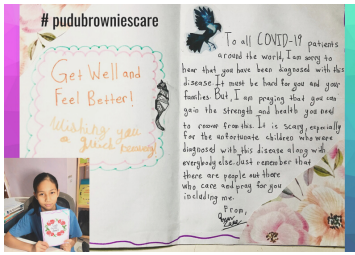 # pudubrowniescare
Get Well and
Feel Better!
Wishing you
a quick recovery
To all COVID-19 patients
around the world, I am sorry to
hear that you have been diagnosed with this
disease. It must be hard for you and your
families. But, I am praying that you can
gain the strength and health you need
to recover from this. It is scary, especially
for the unfortunate children who were
diagnosed with this disease along with
everybody else. Just remember that
there are people out there
who care and pray for you
including me.
From,